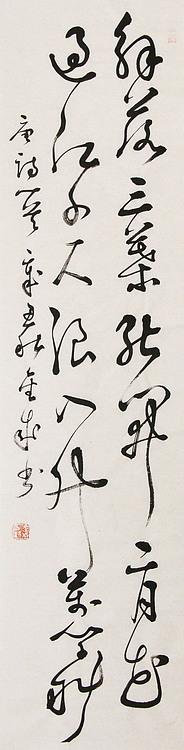 解落三葉能開二月花
過江千尺浪入竹萬竿斜
唐詩一首 辛丑秋 書